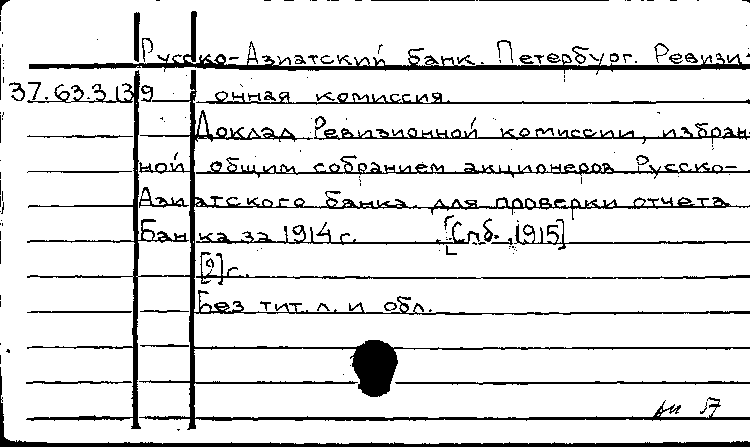 Русско-Азиатский банк. Петербург. Ревизи-
37.63.3.139 онная комиссия.
Доклад Ревизионной комиссии, избран-
ной общим собранием акционеров Русско-
Азиатского банка для проверки отчета
Банка за 1914 г. [Спб., 1915]
[2] с.
Без тит. л. и обл.
57